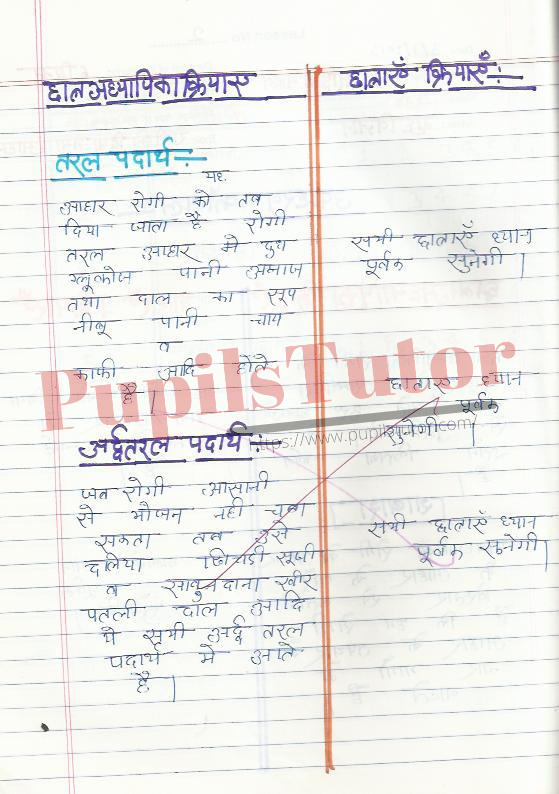 छात्रअध्यापिका क्रियाएं
छात्राएँ क्रियाएँ :-
तरल पदार्थ :-
यह
आहार रोगी को तब
दिया जाता है रोगी
तरल आहार मे दुध
ग्लूकोज पानी अनाज
तथा दाल का सूप
नीबू पानी चाय
व
काफी आदि होते
है।
सभी छात्राएँ ध्यान
पूर्वक सुनेगी।
PupilsTutor
https://www.pupilst
छात्राएं ध्यान
पूर्वक
सुनेगी।
अर्द्वतरल पदार्थ :-
जब रोगी आसानी
से भौजन नही चबा
सकता तब उसे
दलिया खिचडी सूजी
व साबुनदाना खीर
पतली दाल आदि
ये सभी अर्द्व तरल
पदार्थ मे आते
है।
सभी छात्राएँ ध्यान
पूर्वक सुनेगी।